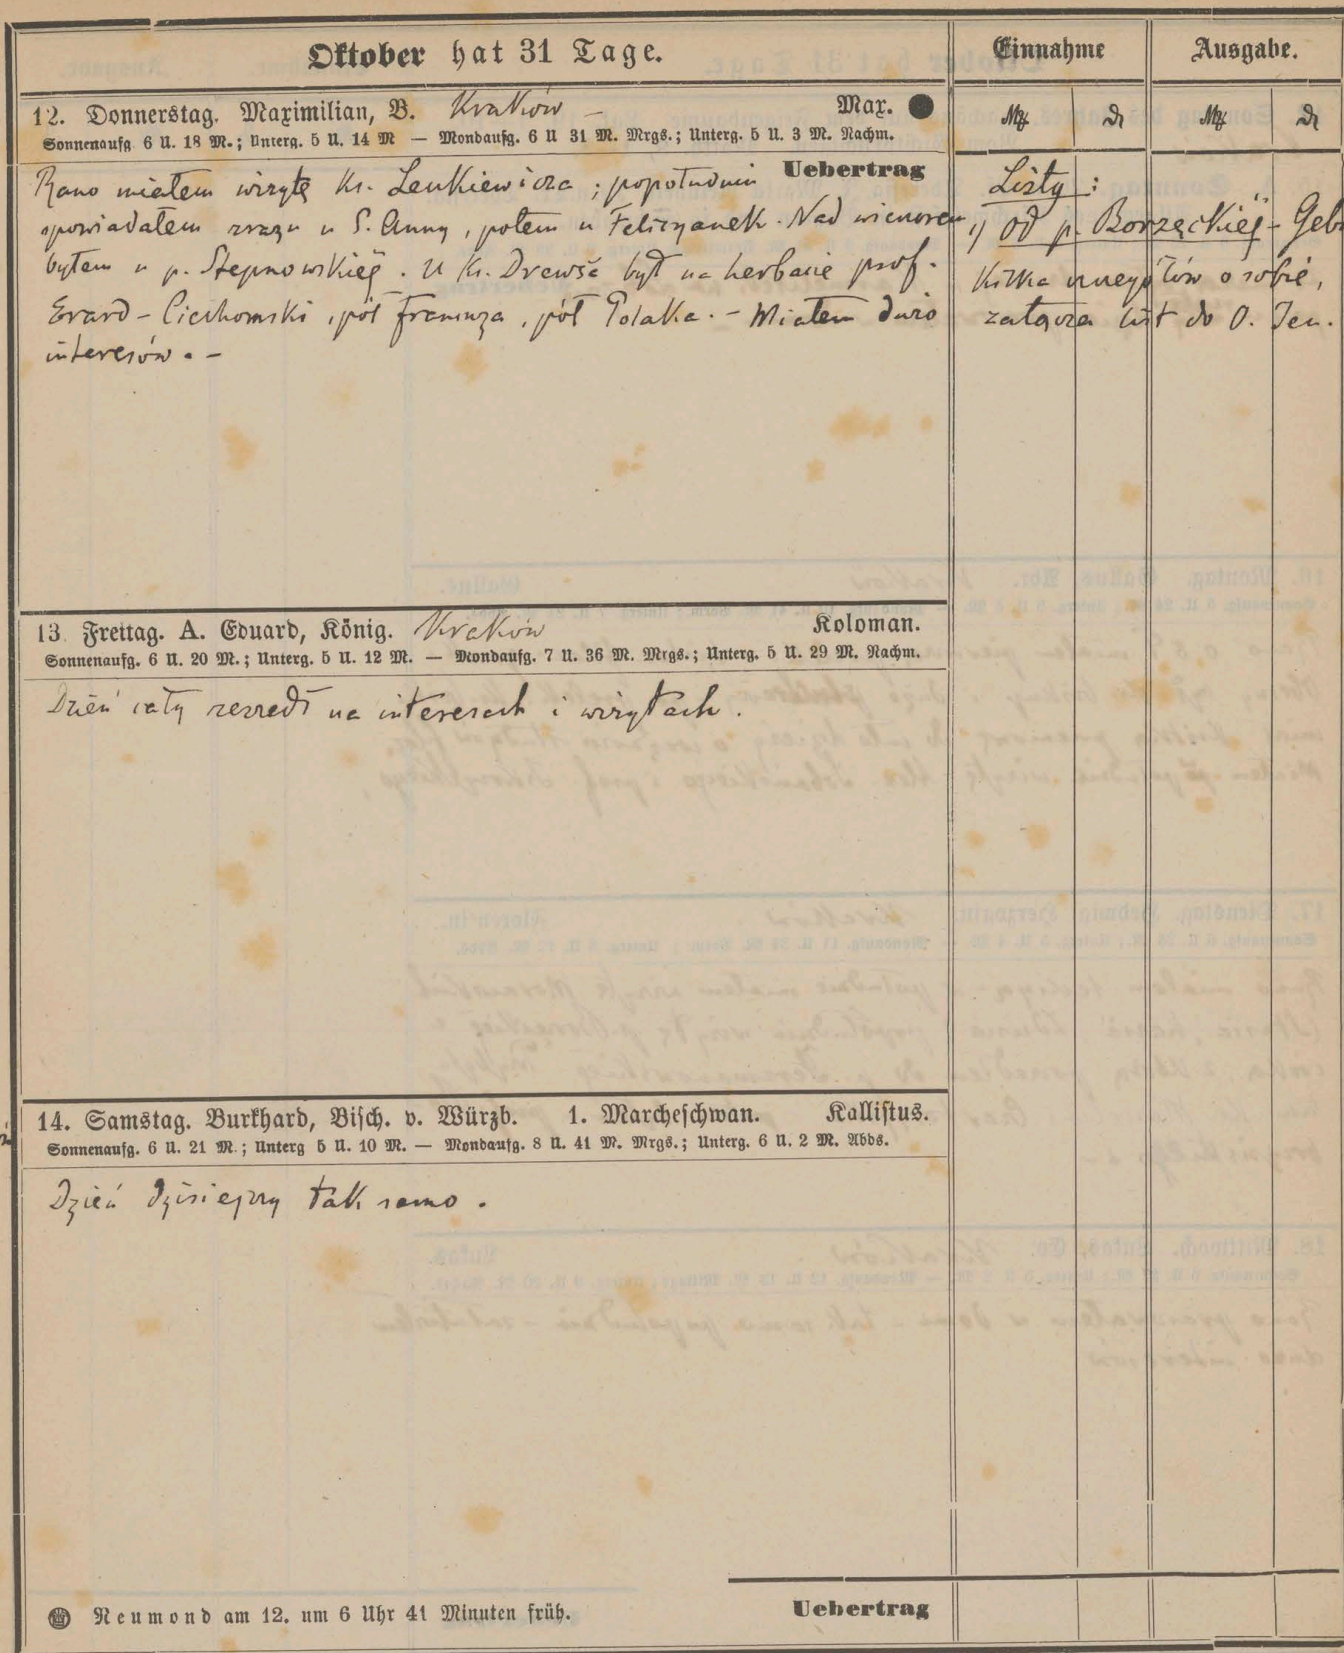 Oktober hat 31 Tage.
Einnahme
Ausgabe.
12. Donnerstag. Maximilian, B. Kraków – Max.
Sonnenaufg. 6 U. 18 M.; Unterg. 5 U. 14 M — Mondaufg. 6 U 31 M. Mrgs.; Unterg. 5 U. 3 M. Nachm.
Mk ₰ Mk ₰
Uebertrag
Rano miałem wizytę Ks. Lenkiewicza; popołudniu
spowiadałem zrazu u S. Anny, potem u Felicyanek. Nad wieczorem
byłem u p. Stepnowskiéj. U Ks. Drewsa był na herbacie prof.
Erard-Ciechomski, pół francuza, pół Polaka. – Miałem dużo
interesów. –
Listy:
1) od p. Borzęckiéj – Geb
Kilka szczegółów o sobie,
załącza list do O. Jen.
13. Freitag. A. Eduard, König. Kraków Koloman.
Sonnenaufg. 6 U. 20 M.; Unterg. 5 U. 12 M. — Mondaufg. 7 U. 36 M. Mrgs.; Unterg. 5 U. 29 M. Nachm.
Dzień cały zeszedł na interesach i wizytach.
14. Samstag. Burkhard, Bisch. v. Würzb. 1. Marcheschwan. Kallistus.
Sonnenaufg. 6 U. 21 M.; Unterg 5 U. 10 M. — Mondaufg. 8 U. 41 M. Mrgs.; Unterg. 6 U. 2 M. Abds.
Dzień dzisiejszy tak samo.
Neumond am 12. um 6 Uhr 41 Minuten früh.
Uebertrag